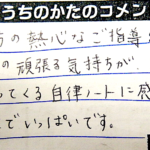 うちのかたのコメン
の熱心なご指導
の頑張る気持ちが
ってくる自律ノートに感
でいっぱいです。